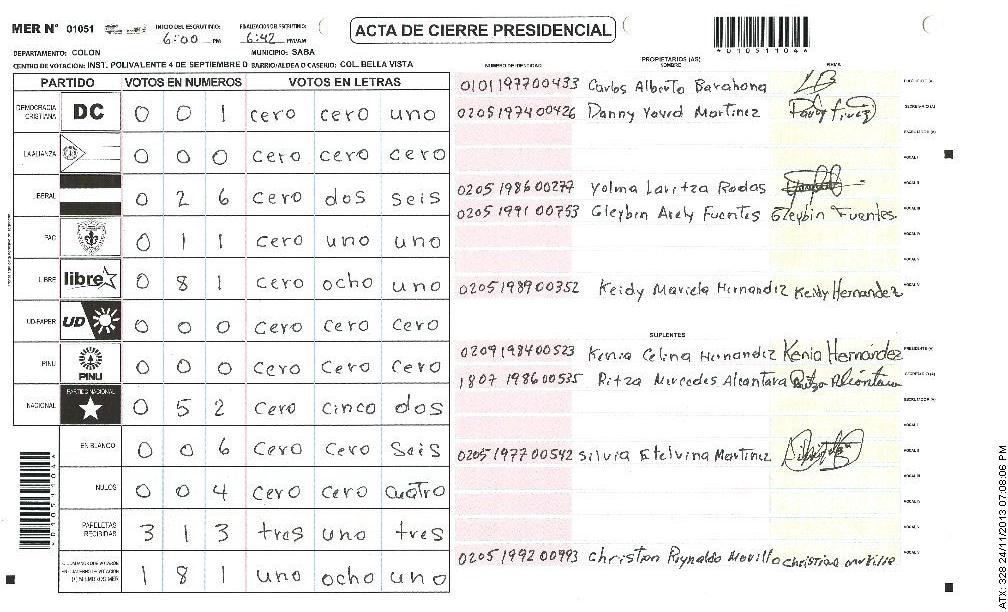 MER N° 01051
INICIO DEL ESCRUTINIO: 6:00 PM
FINALIZACION DEL ESCRUTINIO: 6:42 PM/AM
ACTA DE CIERRE PRESIDENCIAL
*01051104*
DEPARTAMENTO: COLON MUNICIPIO: SABA
CENTRO DE VOTACION: INST. POLIVALENTE 4 DE SEPTIEMBRE D BARRIO/ALDEA O CASERIO: COL. BELLA VISTA
PARTIDO VOTOS EN NUMEROS VOTOS EN LETRAS
DEMOCRACIA CRISTIANA DC 0 0 1 cero cero uno
LA ALIANZA 0 0 0 cero cero cero
LIBERAL 0 2 6 cero dos seis
PAC 0 1 1 cero uno uno
LIBRE libre 0 8 1 cero ocho uno
UD-FAPER UD 0 0 0 cero cero cero
PINU PINU 0 0 0 cero cero cero
NACIONAL PARTIDO NACIONAL 0 5 2 cero cinco dos
EN BLANCO 0 0 6 cero cero seis
NULOS 0 0 4 cero cero cuatro
PAPELETAS RECIBIDAS 3 1 3 tres uno tres
1 8 1 uno ocho uno
NUMERO DE IDENTIDAD PROPIETARIOS (AS) NOMBRE FIRMA
0101197700433 Carlos Alberto Barahona
0205197400426 Danny Yovid Martinez
0205198600277 Yolma Laritza Rodas
0205199100753 Gleybin Arely Fuentes Gleybin Fuentes.
0205198900352 Keidy Mariela Hernandiz Keidy Hernandez
SUPLENTES
0209198400523 Kenia Celina Hernandiz Kenia Hernández
1807198600535 Ritza Mercedes Alcantara Ritza Alcántara
0205197700542 Silvia Etelvina Martinez
0205199200993 Christian Reynaldo Movillo
ATX: 328 24/11/2013 07:08:06 PM